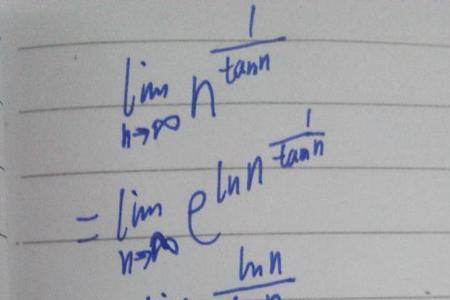 lim n→∞ n^(1/tan n)
= lim n→∞ e^(ln n^(1/tan n))
ln n